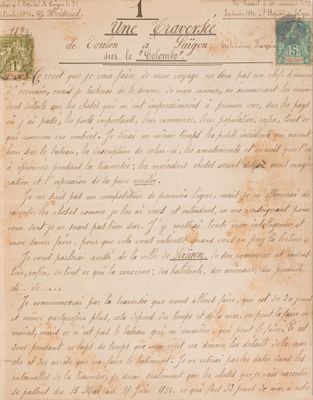 1
Une Traversée
de Toulon à Saïgon
sur le "Colombo"
1894
Le récit que je vais faire de mon voyage ne sera pas un chef d'œuvre
d'écrivain, mais je tâcherai de le donner de mon mieux, en énumérant les moin-
dres détails que les choses qui m'ont impressionné à première vue, sur les pays
où j'ai passé, les ports importants, leur commerce, leur population, enfin, tout ce
qui concerne ces contrées. Je dirai en même temps les petits incidents qui eurent
lieu sur le bateau, la description de celui-ci, les amusements et ennuis que l'on
a éprouvés pendant la traversée; les moindres choses seront sans exagé-
ration et l'expression de la pure vérité.
Je ne suis pas un compositeur de première ligne, mais je m'efforcerai de
raconter les choses comme je les ai vues et entendues, en me renseignant pour
ceux dont je ne serais pas bien sûr. J'y mettrai toute mon intelligence et
mon savoir faire, pour que cela vous intéresse quand vous en ferez la lecture.
Je vous parlerai aussi de la ville de Saïgon, de son commerce et indus-
trie, enfin, de tout ce qui la concerne; des habitants, des animaux, des produits,
etc... etc...
Je commencerai par la traversée que nous allons faire, qui est de 30 jours
et même quelquefois plus, cela dépend du temps et de la mer, on peut la faire en
moins, mais ce n'est pas le bateau qui m'emmène, qui peut le faire. C'est
donc pendant ce laps de temps que mon récit va donner les détails de la mar-
che et des arrêts que va faire le bâtiment. Je ne mettrai pas les dates dans les
intervalles de la traversée, je dirai seulement que les choses que je vais raconter
se passent du 15 Mai au 17 Juin 1894, ce qui fait 32 jours de mer à notre